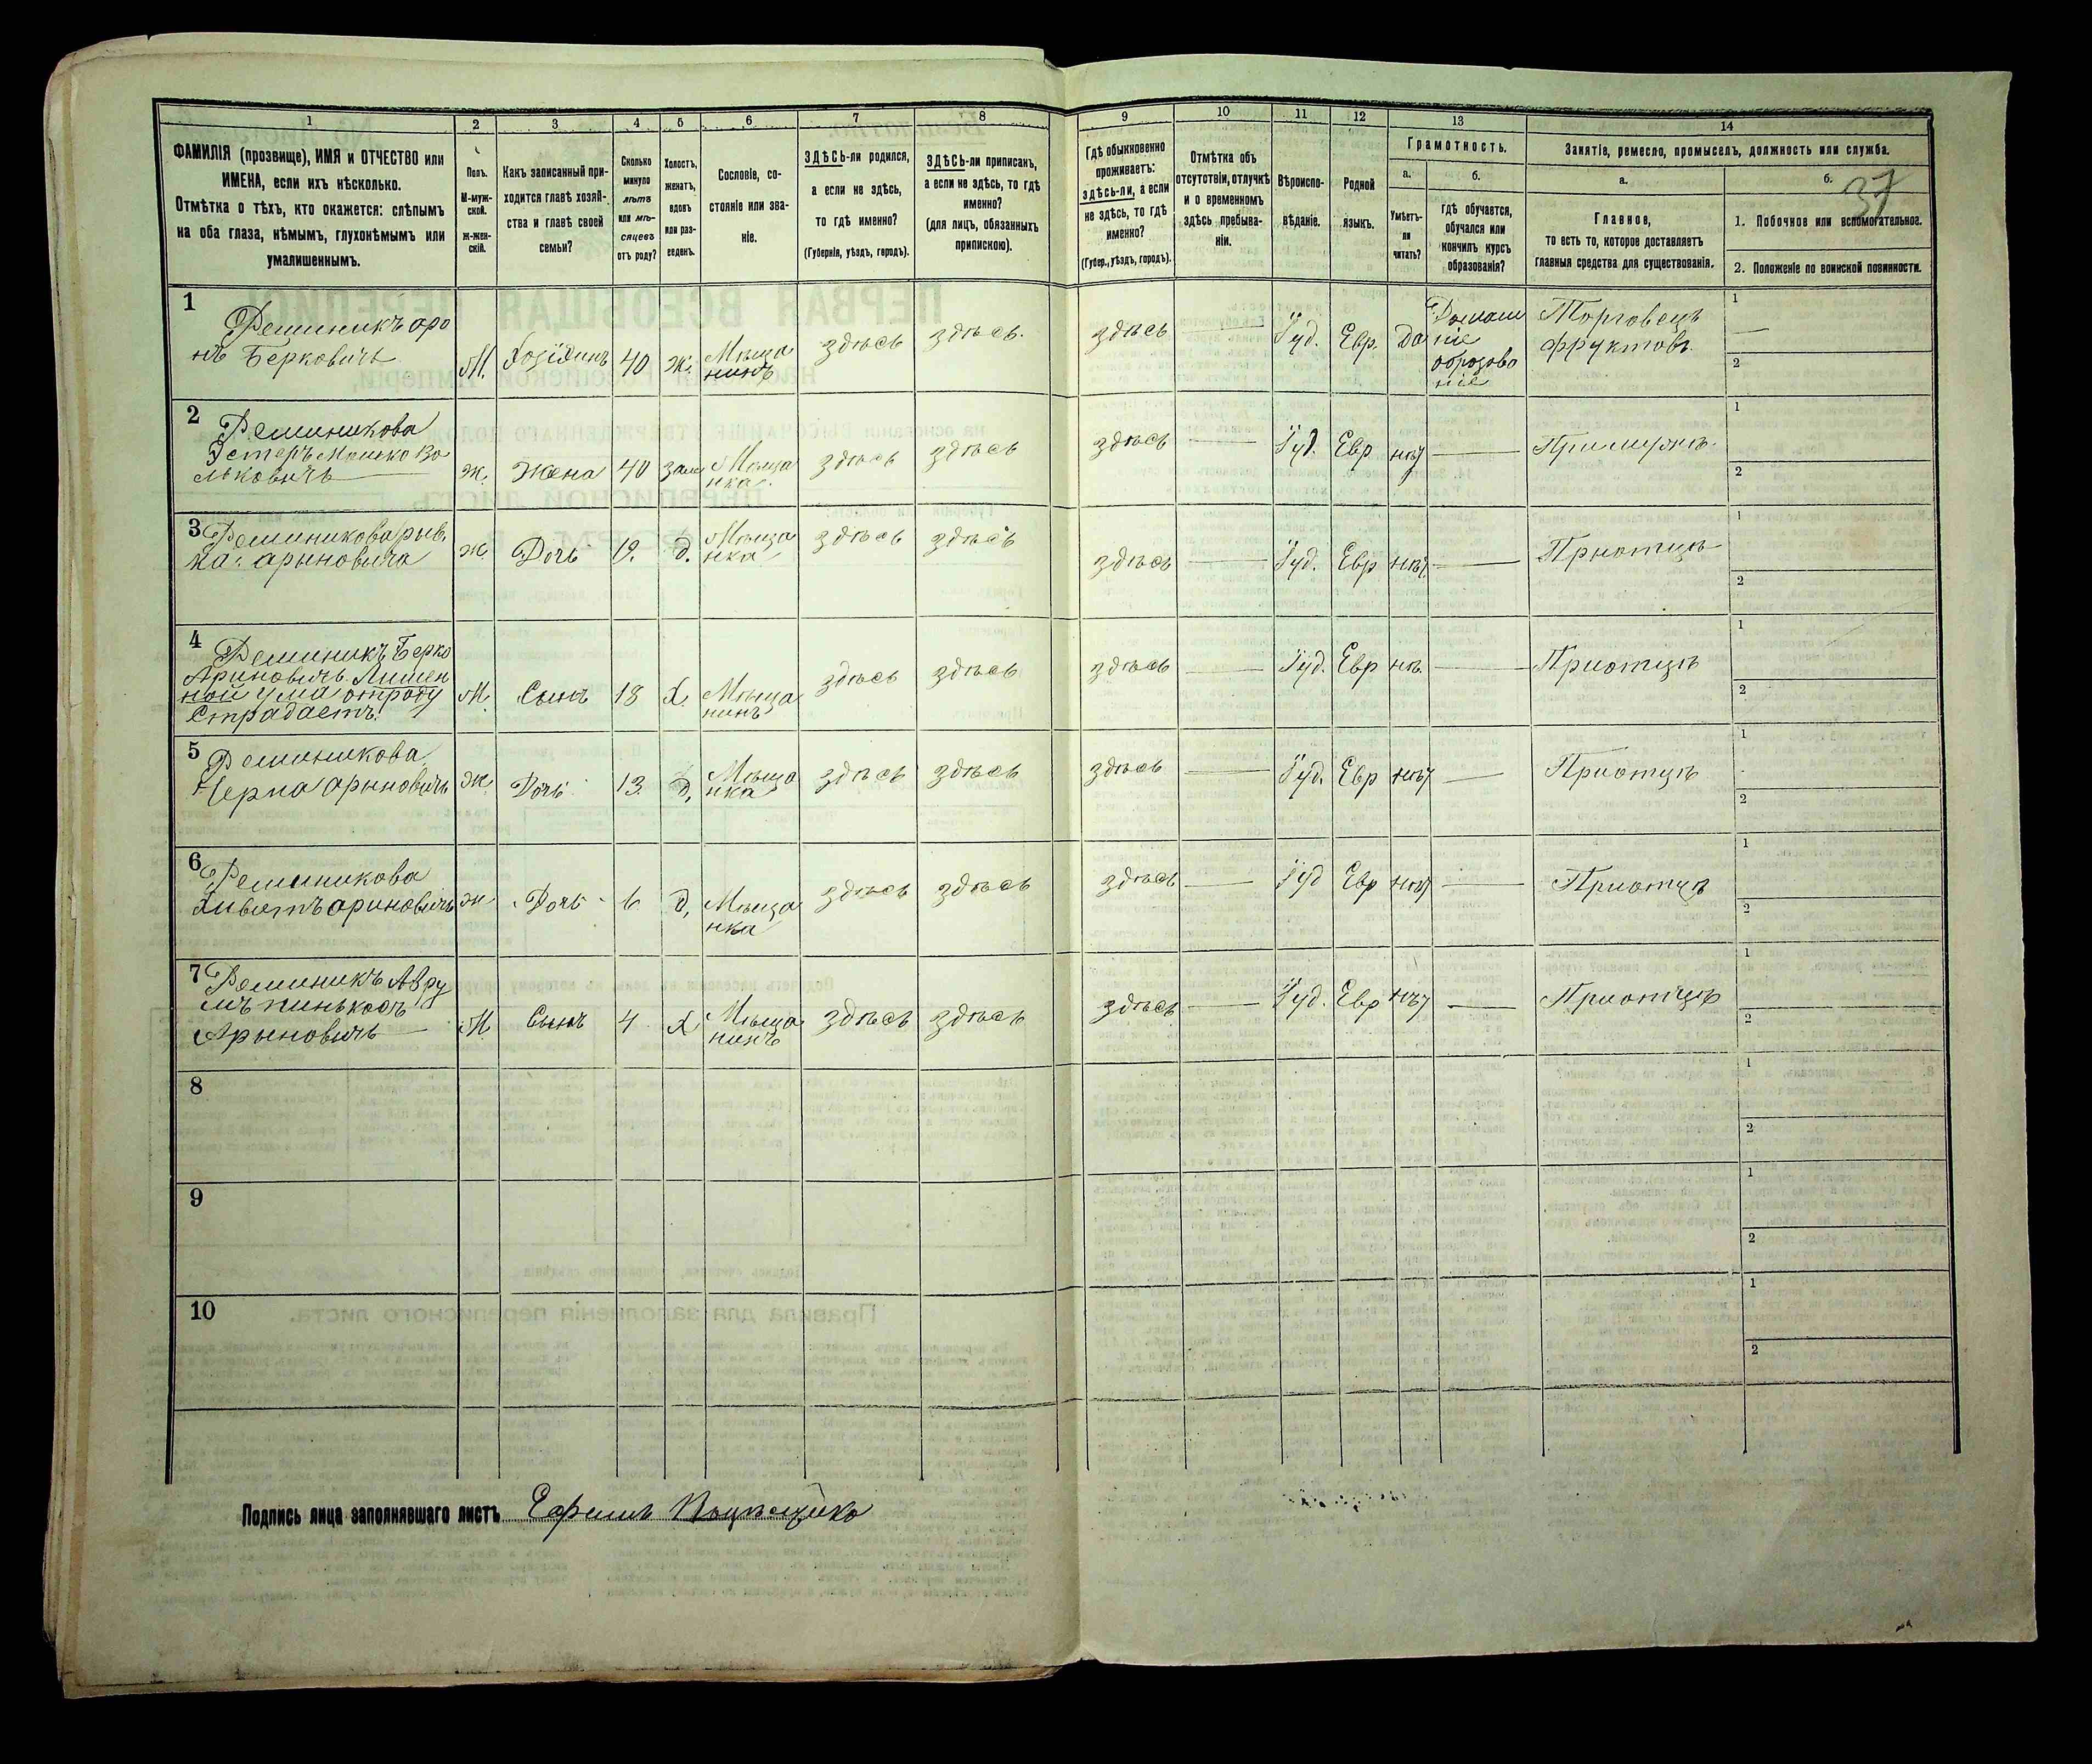 1 2 3 4 5 6 7 8 9 10 11 12 13 14
ФАМИЛІЯ (прозвище), ИМЯ и ОТЧЕСТВО или
ИМЕНА, если ихъ нѣсколько.
Отмѣтка о тѣхъ, кто окажется: слѣпымъ
на оба глаза, нѣмымъ, глухонѣмымъ или
умалишеннымъ.
Полъ.
М-муж-
ской.
Ж-жен-
скій.
Какъ записанный при-
ходится главѣ хозяй-
ства и главѣ своей
семьи?
Сколько
минуло
лѣтъ
или мѣ-
сяцевъ
отъ роду?
Холостъ,
женатъ,
вдовъ
или раз-
веденъ.
Сословіе, со-
стояніе или зва-
ніе.
ЗДѢСЬ-ли родился,
а если не здѣсь,
то гдѣ именно?
(Губернія, уѣздъ, городъ).
ЗДѢСЬ-ли приписанъ,
а если не здѣсь, то гдѣ
именно?
(для лицъ, обязанныхъ
припискою).
Гдѣ обыкновенно
проживаетъ:
ЗДѢСЬ-ли, а если
не здѣсь, то гдѣ
именно?
(Губер., уѣздъ, городъ).
Отмѣтка объ
отсутствіи, отлучкѣ
и о временномъ
здѣсь пребыва-
ніи.
Вѣроиспо-
вѣданіе.
Родной
языкъ.
Грамотность.
а.
Умѣетъ-
ли
читать?
б.
Гдѣ обучается,
обучался или
кончилъ курсъ
образованія?
Занятіе, ремесло, промыселъ, должность или служба.
а.
Главное,
то есть то, которое доставляетъ
главныя средства для существованія.
б.
37
1. Побочное или вспомогательное.
2. Положеніе по воинской повинности.
1
Решиникъ аро
нъ Берковичъ
М. Хозіяинъ 40 ж. Мѣща
нинъ
здѣсь здѣсь. здѣсь — Іуд. Евр. Да
Домаш
ніе
оброзова
ніе
Торговецъ
фруктовъ.
1 —
2
2
Решиникова
Эстеръ Мошко Во
льковичъ
ж. Жена 40 зам Мѣща
нка.
здѣсь здѣсь здѣсь — Іуд. Евр нѣт — Примужъ.
1
2
3 Решиникова рыв
ка. арыновича
ж. Дочь 19. д. Мѣща
нка
здѣсь здѣсь здѣсь — Іуд. Евр нѣт — Приотцѣ
1
2
4
Решиникъ Берко
Ариновичъ. Лишен
ной ума отроду
страдаетъ.
М. Сынъ 18 Х. Мѣща
нинъ
здѣсь здѣсь здѣсь — Іуд. Евр нѣ. — Приотцѣ
1
2
5 Решиникова
Черна арыновичъ
ж. Дочь 13. д. Мѣща
нка
здѣсь здѣсь здѣсь — Іуд. Евр нѣт — Приотцѣ
1
2
6 Решиникова
ариновичъ
ж. Дочь 6 д. Мѣща
нка
здѣсь здѣсь здѣсь — Іуд Евр нѣт — Приотцѣ
1
2
7 Решиникъ Авру
мъ пинькосъ
Арыновичъ
М. Сынъ 4 Х Мѣща
нинъ
здѣсь здѣсь здѣсь — Іуд. Евр нѣт — Приотцѣ
1
2
8
1
2
9
1
2
10
1
2
Подпись лица заполнявшаго листъ Ефимъ